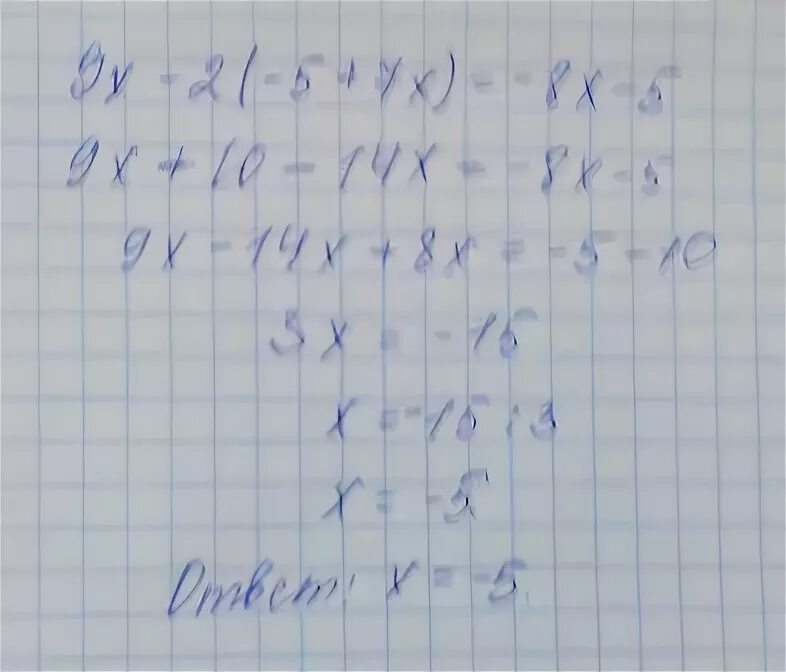 9x - 2(-5+7x) = -8x-5
9x + 10 - 14x = -8x-5
9x - 14x + 8x = -5 - 10
3x = -15
x = -15 : 3
x = -5
Ответ: x = -5